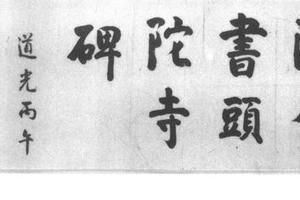 書頭
陀寺
碑
道光丙午